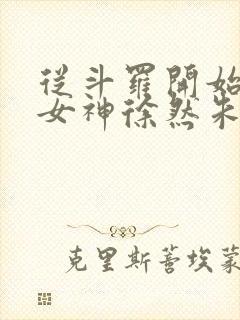 從斗羅開始
女神徐然朱
克里斯蒂埃蒙